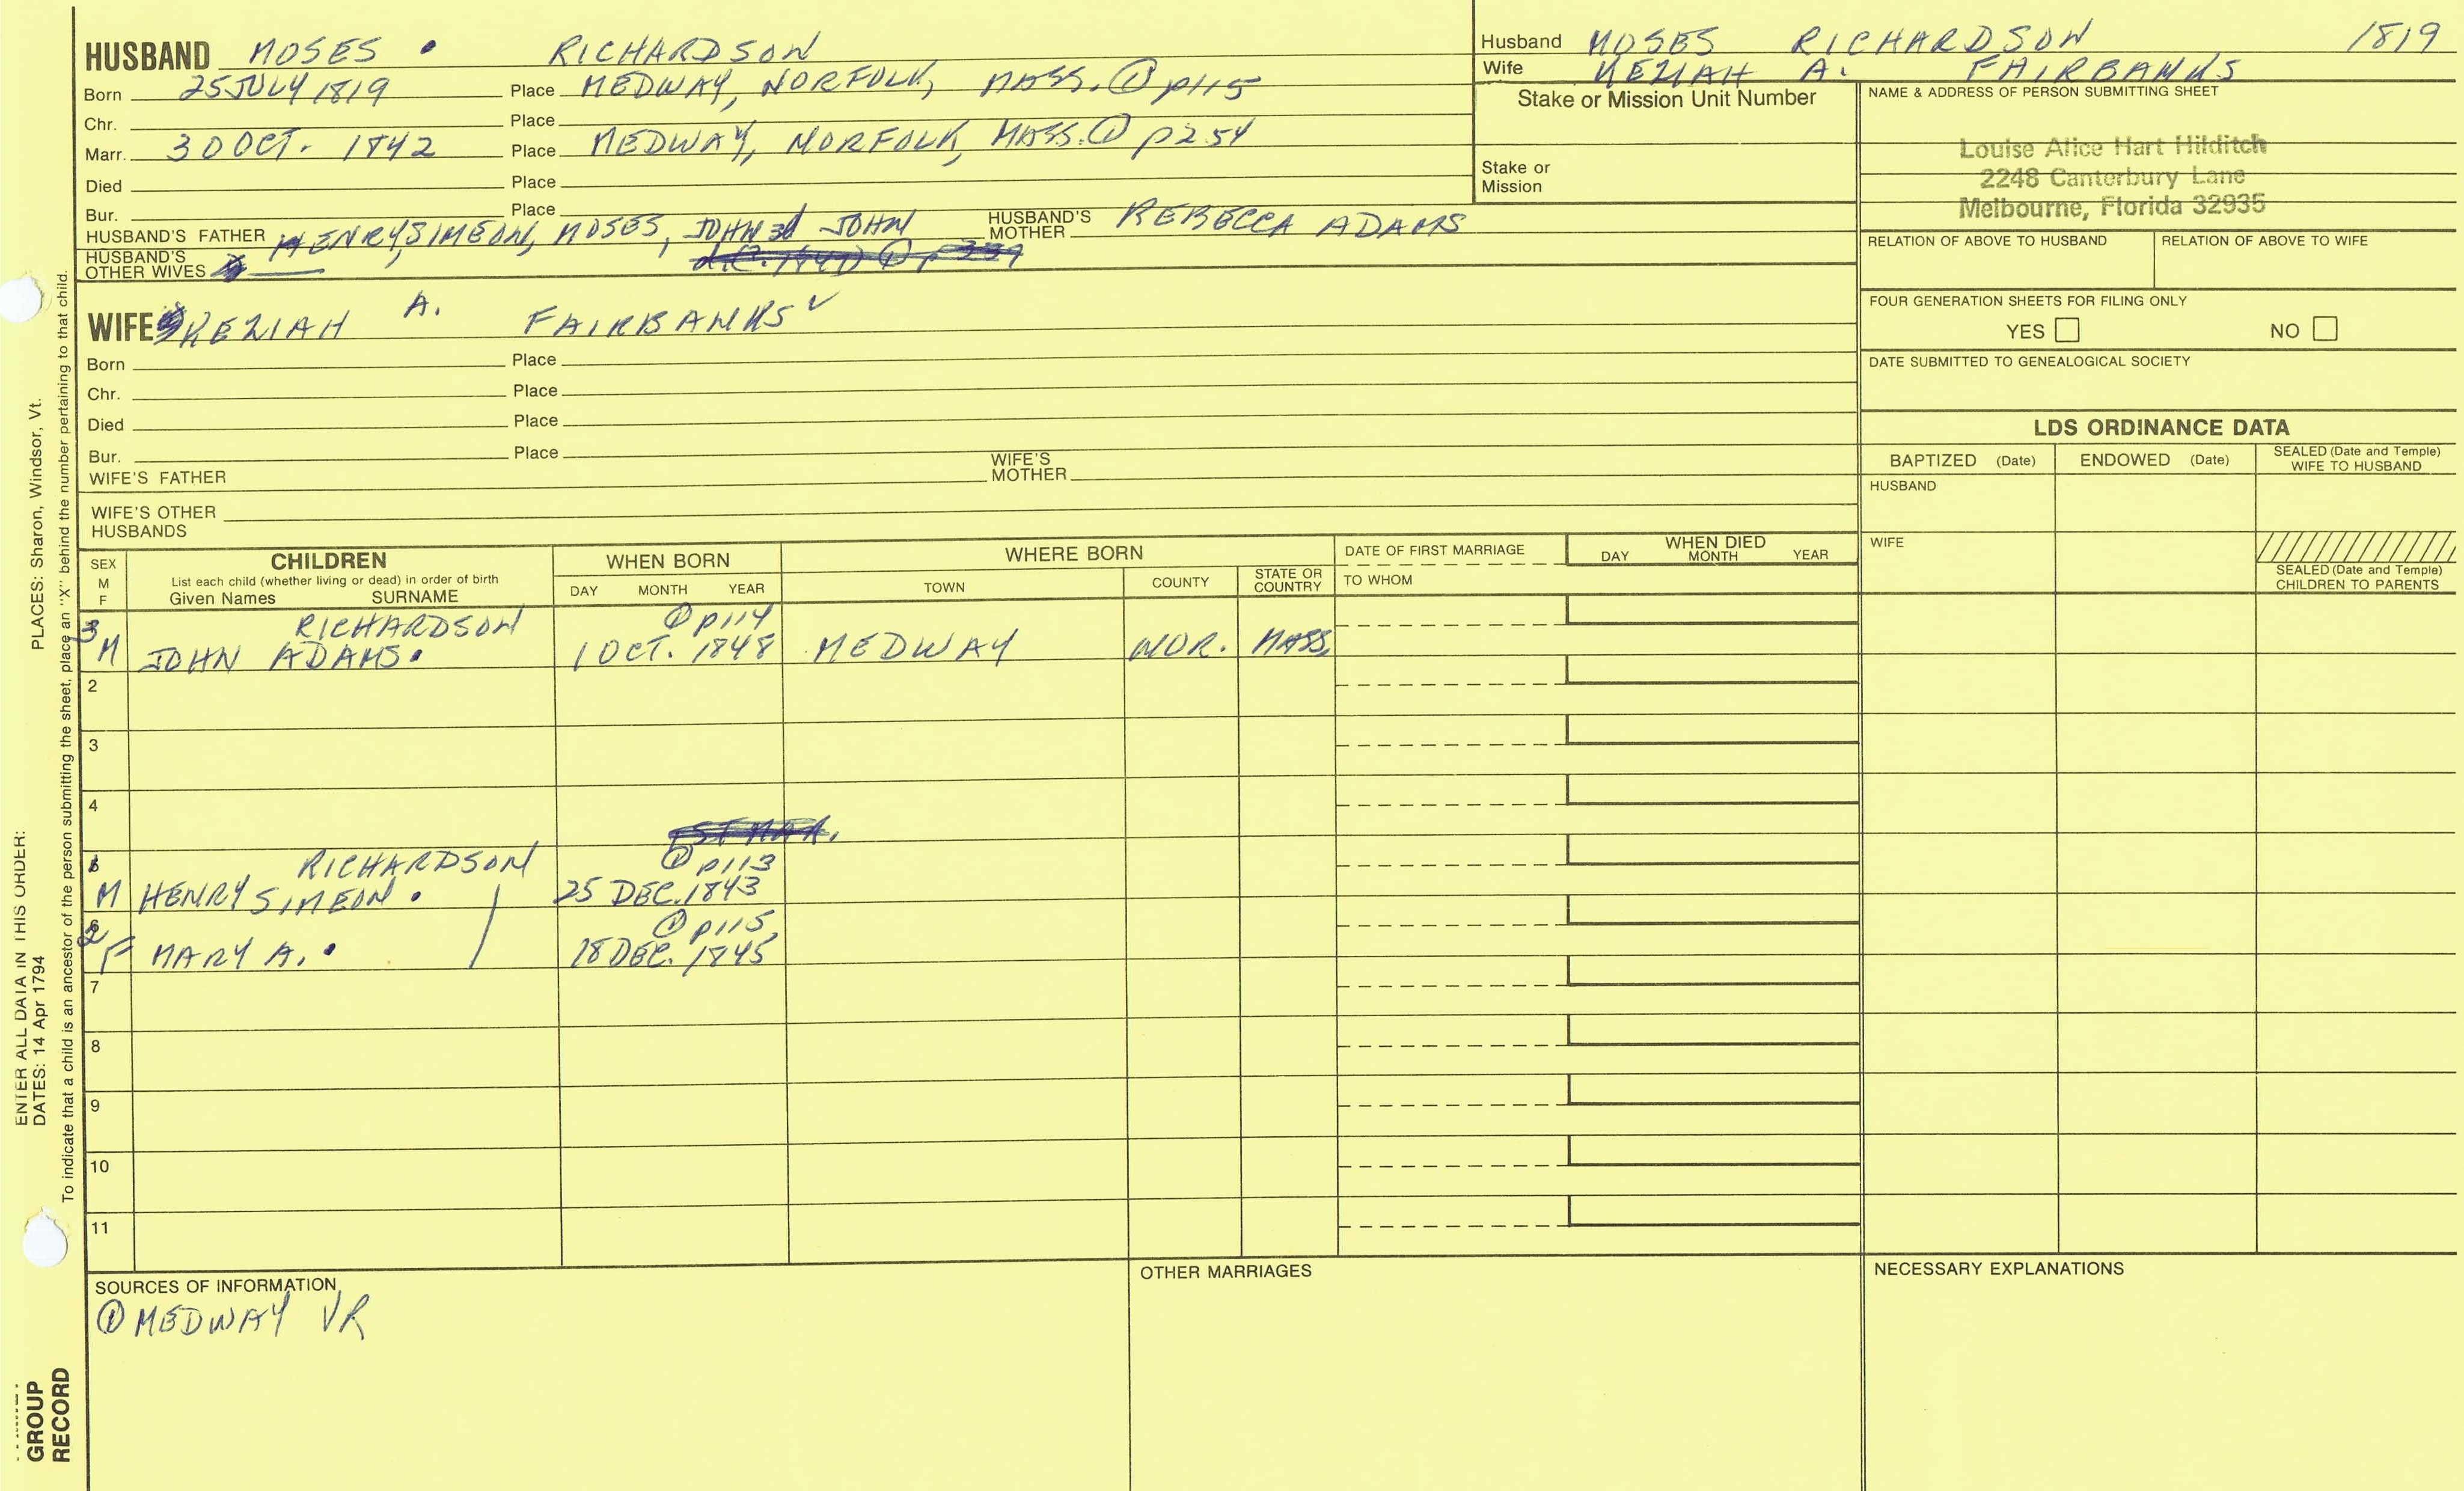 HUSBAND MOSES • RICHARDSON
Born 25 JULY 1819 Place MEDWAY, NORFOLK, MASS. ① p115
Chr. Place
Marr. 30 OCT. 1842 Place MEDWAY, NORFOLK, MASS. ① p254
Died Place
Bur. Place
HUSBAND'S FATHER HENRY, SIMEON, MOSES, JOHN 3d JOHN HUSBAND'S MOTHER REBECCA ADAMS
HUSBAND'S OTHER WIVES
Husband MOSES RICHARDSON 1819
Wife KEZIAH A. FAIRBANKS
Stake or Mission Unit Number
Stake or Mission
NAME & ADDRESS OF PERSON SUBMITTING SHEET
Louise Alice Hart Hilditch
2248 Canterbury Lane
Melbourne, Florida 32935
RELATION OF ABOVE TO HUSBAND RELATION OF ABOVE TO WIFE
FOUR GENERATION SHEETS FOR FILING ONLY
YES NO
DATE SUBMITTED TO GENEALOGICAL SOCIETY
WIFE KEZIAH A. FAIRBANKS ✓
Born Place
Chr. Place
Died Place
Bur. Place
WIFE'S FATHER WIFE'S MOTHER
WIFE'S OTHER HUSBANDS
LDS ORDINANCE DATA
BAPTIZED (Date) ENDOWED (Date) SEALED (Date and Temple) WIFE TO HUSBAND
HUSBAND
WIFE
SEALED (Date and Temple) CHILDREN TO PARENTS
SEX M F
CHILDREN
List each child (whether living or dead) in order of birth
Given Names SURNAME
WHEN BORN
DAY MONTH YEAR
WHERE BORN
TOWN COUNTY STATE OR COUNTRY
DATE OF FIRST MARRIAGE
TO WHOM
WHEN DIED
DAY MONTH YEAR
3 RICHARDSON ① p114
M JOHN ADAMS • 1 OCT. 1848 MEDWAY WOR. MASS.
2
3
4
RICHARDSON ① p113
M HENRY SIMEON • 25 DEC. 1843
6 ① p115,
2 F MARY A. • 18 DEC. 1845
7
8
9
10
11
SOURCES OF INFORMATION
① MEDWAY VR
OTHER MARRIAGES
NECESSARY EXPLANATIONS
ENTER ALL DATA IN THIS ORDER:
DATES: 14 Apr 1794 PLACES: Sharon, Windsor, Vt.
To indicate that a child is an ancestor of the person submitting the sheet, place an "X" behind the number pertaining to that child.
GROUP
RECORD